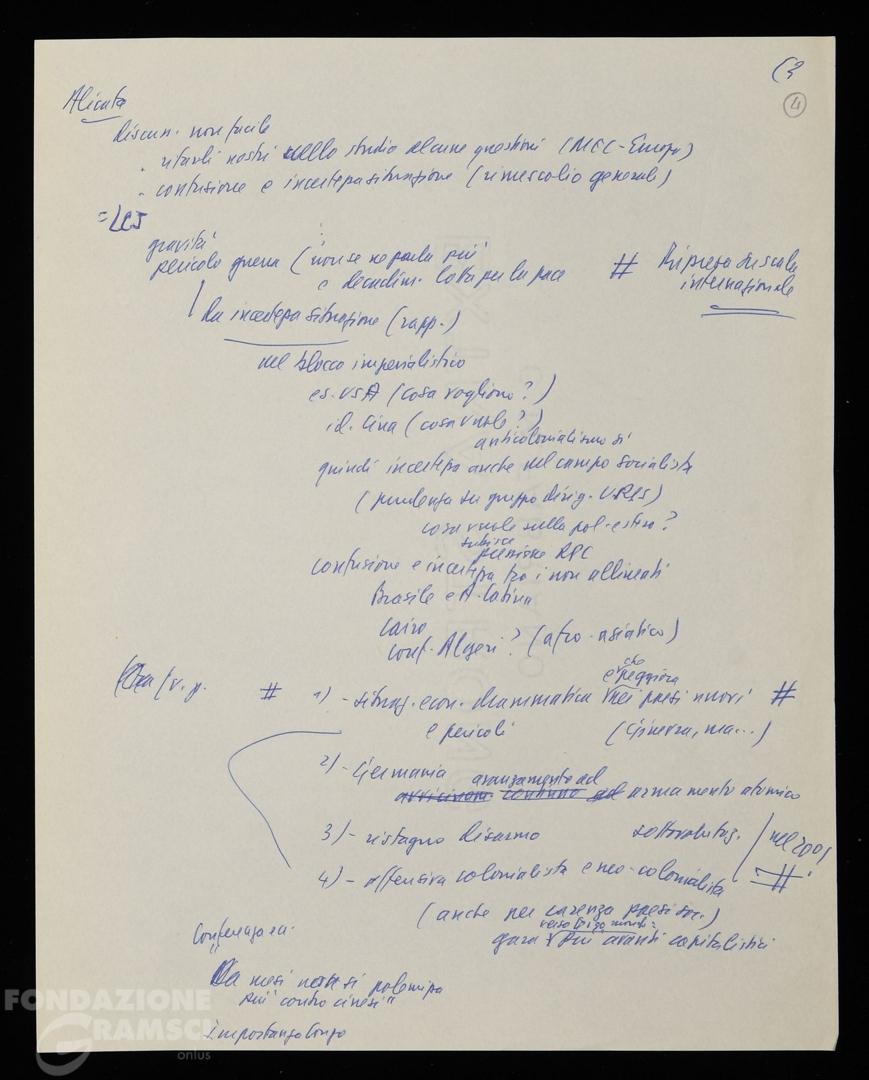 (3
4
Alicata
discuss. non facile
. ritardi nostri nello studio alcune questioni (MEC-Europa)
. confusione e incertezza situazione (rimescolio generale)
=
gravità
pericolo guerra ( non se ne parla più
e decadim. lotta per la pace
# Ripresa su scala
internazionale
da incertezza situazione (rapp.)
nel blocco imperialistico
es. USA (cosa vogliono?)
id. Cina (cosa vuole?)
anticolonialismo sì
quindi incertezza anche nel campo socialista
(prudenza su gruppo dirig. URSS)
cosa vuole sulla pol. estera?
subisce
pressione RPC
confusione e incertezza tra i non allineati
Brasile e A. Latina
Cairo
conf. Algeri? (afro-asiatico)
# 1) - situaz. econ. drammatica e che peggiora nei paesi nuovi #
e pericoli (Ginevra, ma...)
2) - Germania avanzamento ad
avvicinam. continuo ad armamento atomico
3) - ristagno disarmo sottovalutaz.
4) - offensiva colonialista e neo-colonialista #
(anche per carenza paesi soc.)
verso terzo mondo:
gara più avanti capitalistici
Conferenza
"Da mesi non si polemizza
più contro cinesi"
importanza Longo
FONDAZIONE
GRAMSCI
onlus